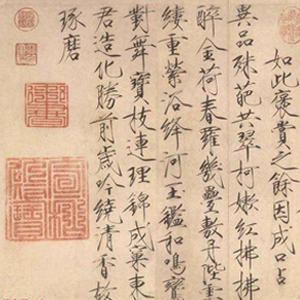 如此褒賞之餘因成口占
異品殊葩共翠柯嫩紅拂拂
醉金荷春羅幾疊敷丹陛雲
縷重縈浴絳河玉鑑和鳴鸞
對舞寶枝連理錦成窠東
君造化勝前歲吟繞清香故
琢磨